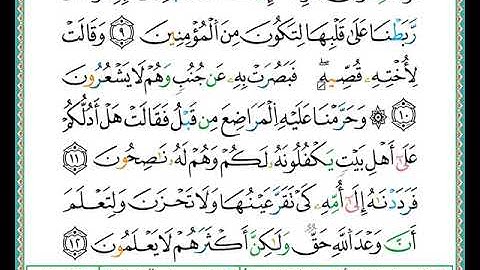 رَّبَطْنَا عَلَىٰ قَلْبِهَا لِتَكُونَ مِنَ ٱلْمُؤْمِنِينَ ٩ وَقَالَتْ
لِأُخْتِهِۦ قُصِّيهِ ۖ فَبَصُرَتْ بِهِۦ عَن جُنُبٍ وَهُمْ لَا يَشْعُرُونَ
١٠ ۞ وَحَرَّمْنَا عَلَيْهِ ٱلْمَرَاضِعَ مِن قَبْلُ فَقَالَتْ هَلْ أَدُلُّكُمْ
عَلَىٰٓ أَهْلِ بَيْتٍ يَكْفُلُونَهُۥ لَكُمْ وَهُمْ لَهُۥ نَـٰصِحُونَ ١١
فَرَدَدْنَـٰهُ إِلَىٰٓ أُمِّهِۦ كَىْ تَقَرَّ عَيْنُهَا وَلَا تَحْزَنَ وَلِتَعْلَمَ
أَنَّ وَعْدَ ٱللَّهِ حَقٌّ وَلَـٰكِنَّ أَكْثَرَهُمْ لَا يَعْلَمُونَ ١٢